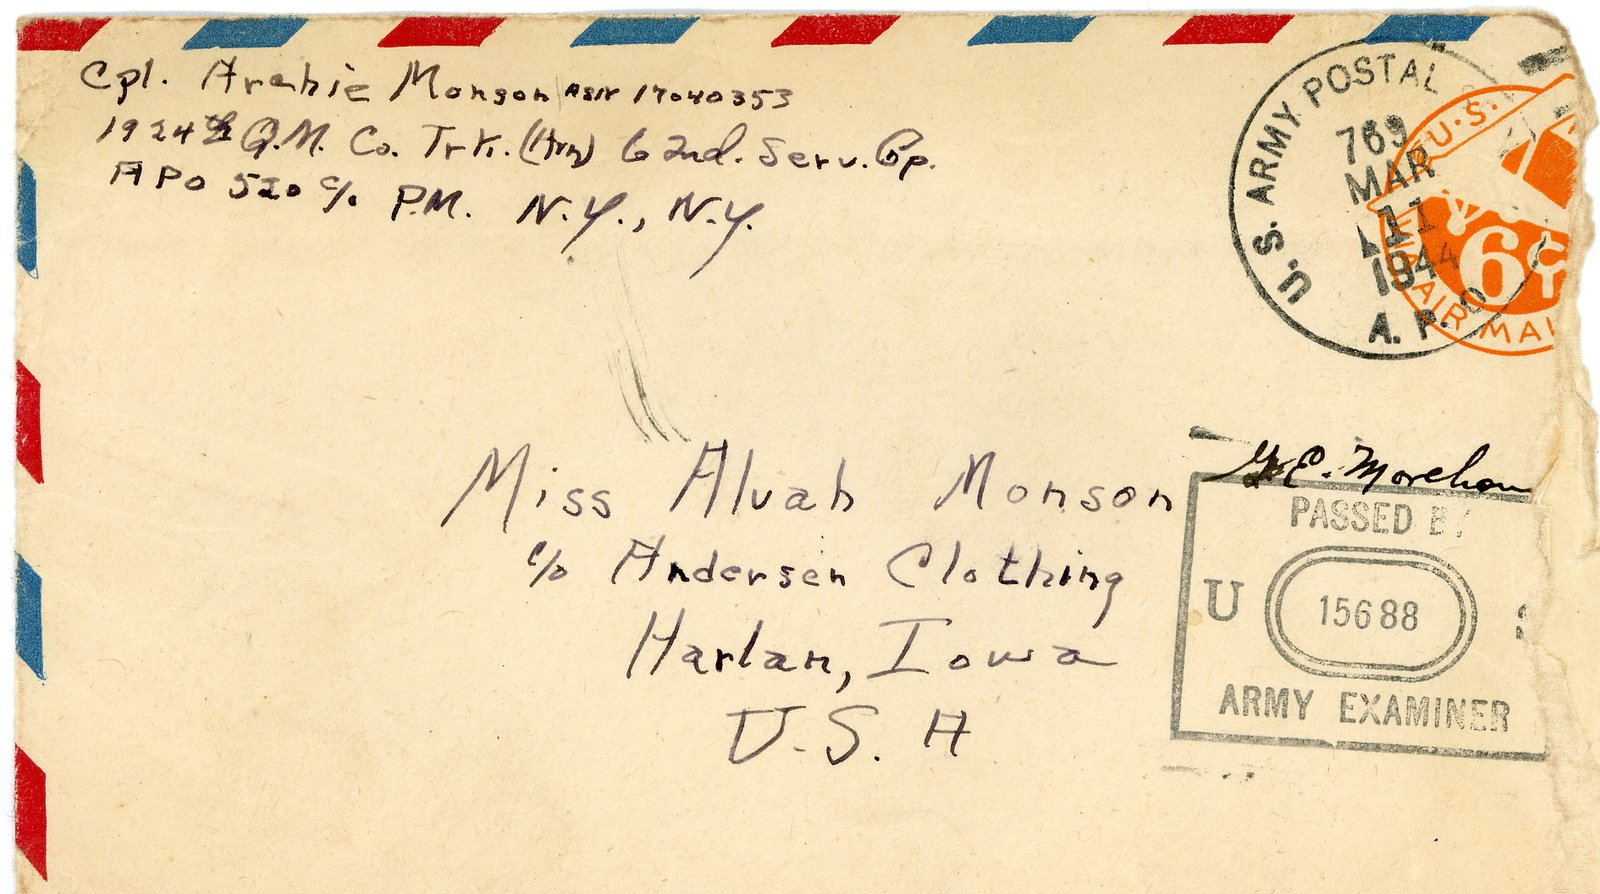 Cpl. Archie Monson ASN 17040353
1924th Q.M. Co. Trk. (Avn) 62nd. Serv. Gp.
APO 520 c/o P.M. N.Y., N.Y.
U.S. ARMY POSTAL
769
MAR
11
1944
A.P.O
U.S.
6¢
AIR MAI
Miss Alvah Monson
c/o Andersen Clothing
Harlan, Iowa
U.S.A
E. Morehou
PASSED BY
U S
15688
ARMY EXAMINER